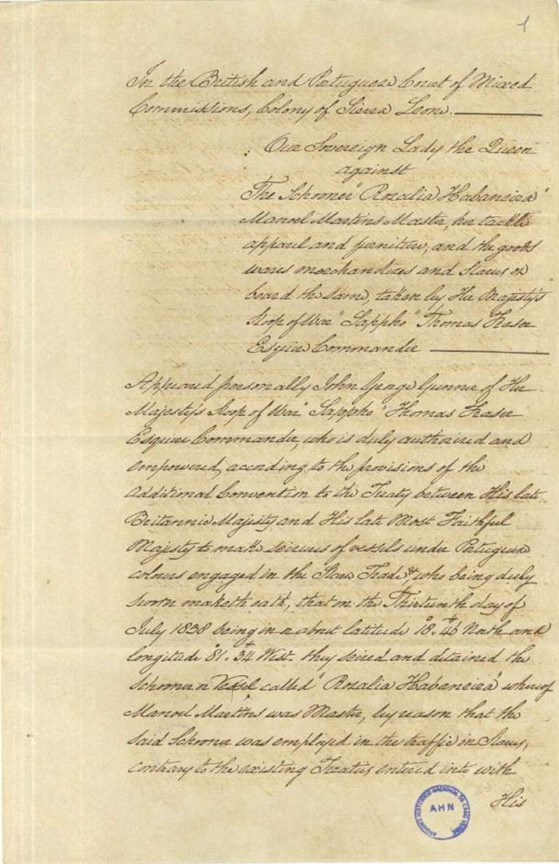 1
In the British and Portuguese Court of Mixed
Commissions, Colony of Sierra Leone.
Our Sovereign Lady the Queen
against
The Schooner "Rozalia Habaneira"
Manoel Martins Master, her tackle
apparel and furniture, and the goods
wares merchandizes and Slaves on
board the same, taken by Her Majesty's
Sloop of War "Sappho" Thomas Fraser
Esquire Commander
Appeared personally John George Gunner of Her
Majesty's Sloop of War "Sappho" Thomas Fraser
Esquire Commander, who is duly authorized and
empowered, according to the provisions of the
Additional Convention to the Treaty between His late
Britannic Majesty and His late Most Faithful
Majesty to make seizures of vessels under Portuguese
colours engaged in the Slave Trade & who being duly
sworn maketh oath, that on the Thirteenth day of
July 1838 being in or about latitude 18.40 North and
longitude 81.34 West. they seized and detained the
Schooner or Vessel called "Rozalia Habaneira" whereof
Manoel Martins was Master, by reason that the
said Schooner was employed in the traffic in Slaves,
contrary to the existing Treaties entered into with
His
ARQUIVO HISTÓRICO NACIONAL DE CABO VERDE
AHN